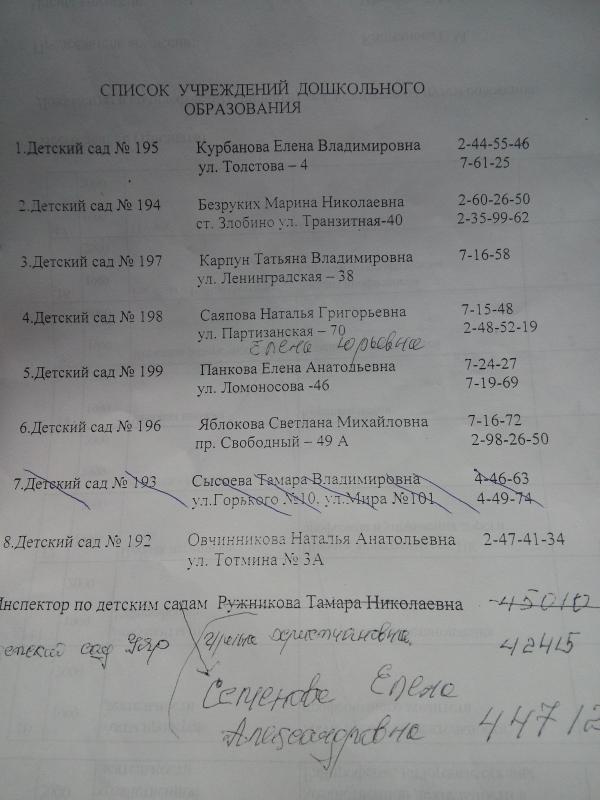 СПИСОК УЧРЕЖДЕНИЙ ДОШКОЛЬНОГО
ОБРАЗОВАНИЯ
1.Детский сад № 195 Курбанова Елена Владимировна 2-44-55-46
ул. Толстова – 4 7-61-25
2.Детский сад № 194 Безруких Марина Николаевна 2-60-26-50
ст. Злобино ул. Транзитная-40 2-35-99-62
3.Детский сад № 197 Карпун Татьяна Владимировна 7-16-58
ул. Ленинградская – 38
4.Детский сад № 198 Саяпова Наталья Григорьевна 7-15-48
ул. Партизанская – 70 2-48-52-19
Елена Юрьевна
5.Детский сад № 199 Панкова Елена Анатольевна 7-24-27
ул. Ломоносова -46 7-19-69
6.Детский сад № 196 Яблокова Светлана Михайловна 7-16-72
пр. Свободный – 49 А 2-98-26-50
7.Детский сад № 193 Сысоева Тамара Владимировна 4-46-63
ул.Горького №10, ул.Мира №101 4-49-74
8.Детский сад № 192 Овчинникова Наталья Анатольевна 2-47-41-34
ул. Тотмина № 3А
Инспектор по детским садам Ружникова Тамара Николаевна 45010
детский сад Уяр христиановна 42415
Семенова Елена
Александровна 44712